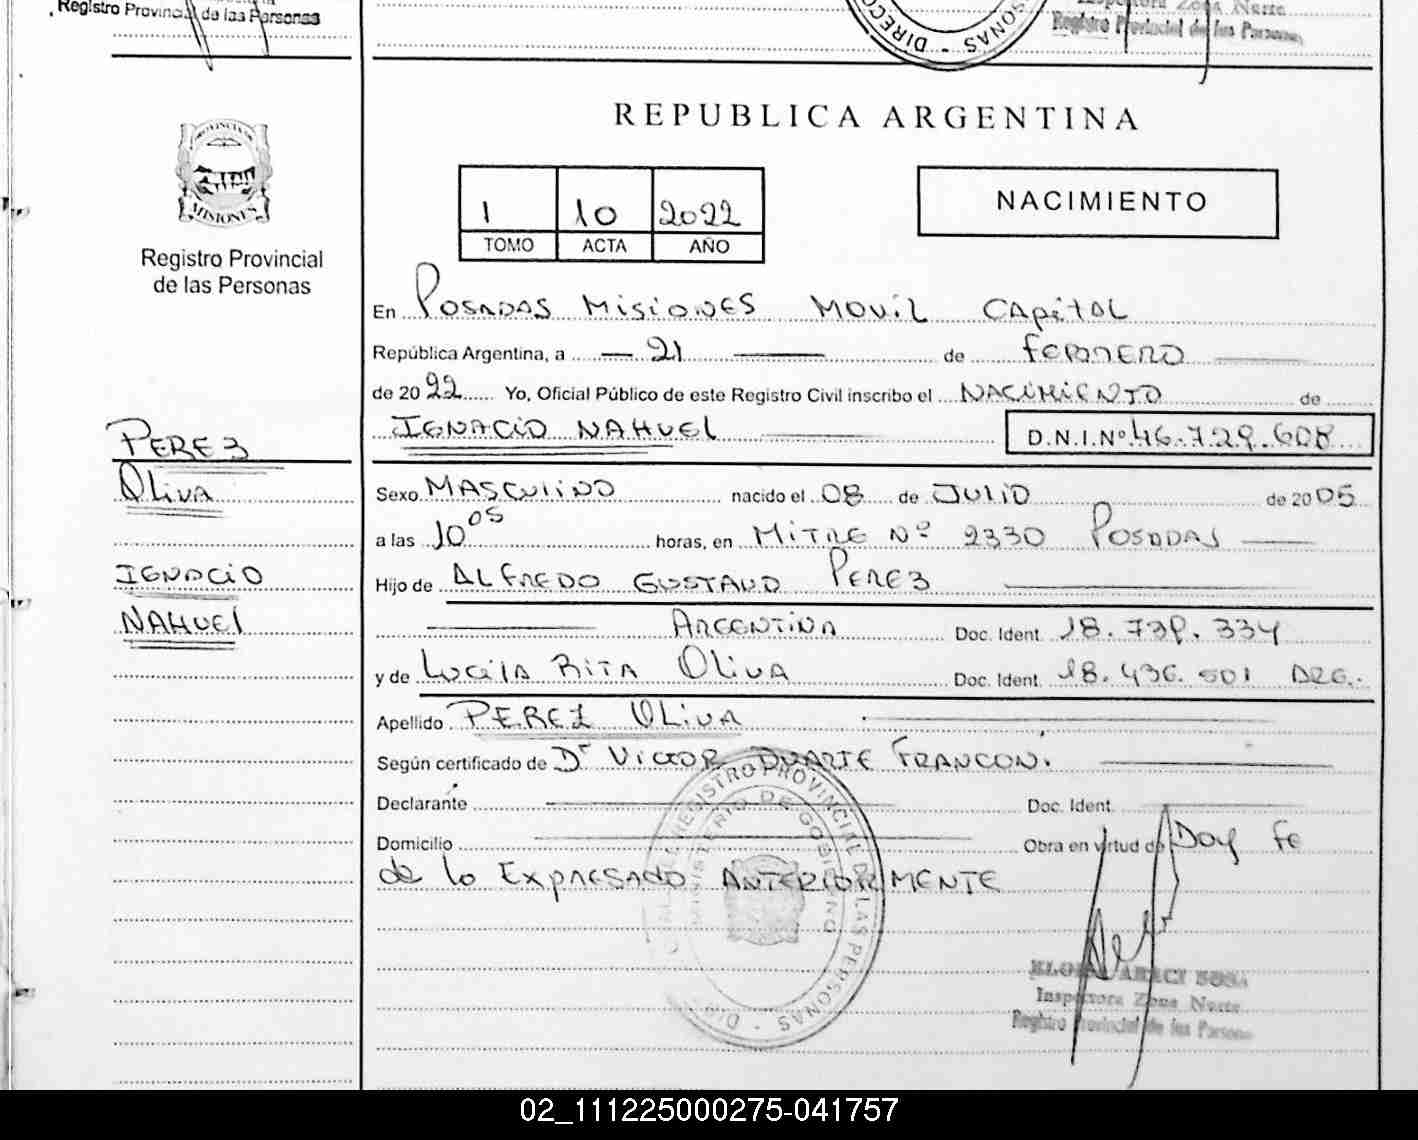 Registro Provincial de las Personas
Registro Provincial de las Personas
PROVINCIA DE
MISIONES
Registro Provincial
de las Personas
REPUBLICA ARGENTINA
1 10 2022
TOMO ACTA AÑO
NACIMIENTO
En POSADAS MISIONES MOVIL CAPITAL
República Argentina, a 21 de FEBRERO
de 2022 Yo, Oficial Público de este Registro Civil inscribo el NACIMIENTO de
IGNACIO NAHUEL D.N.I.Nº 46.729.608
PEREZ
OLIVA
IGNACIO
NAHUEL
Sexo MASCULINO nacido el 08 de JULIO de 2005
a las 10 05 horas, en MITRE Nº 2330 POSADAS
Hijo de ALFREDO GUSTAVO PEREZ
ARGENTINA Doc. Ident. 18.739.334
y de LUCILA RITA OLIVA Doc. Ident. 18.436.501 ARG.
Apellido PEREZ OLIVA
Según certificado de Dr VICTOR DUARTE FRANCONI
Declarante Doc. Ident.
Domicilio Obra en virtud de Doy Fe
de lo EXPRESADO ANTERIORMENTE
REGISTRO PROVINCIAL DE LAS PERSONAS
MINISTERIO DE GOBIERNO
ARACI SOSA
Inspectora Zona Norte
Registro Provincial de las Personas
02_111225000275-041757